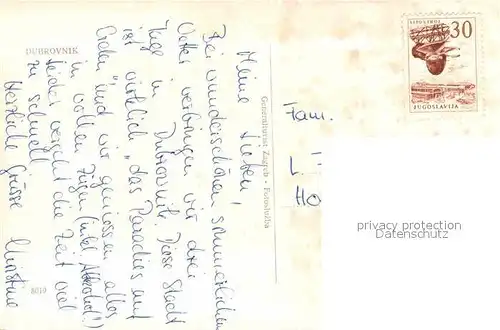 DUBROVNIK
Meine Lieben,
Bei wunderschönem, sommerlichem
Wetter verbringen wir drei
Tage in Dubrovnik. Diese Stadt
ist wirklich "das Paradies auf
Erden" und wir geniessen alles
in vollen Zügen (inkl. Alkohol!)
Leider vergeht die Zeit viel
zu schnell
Herzliche Grüsse
Christine
8019
Generalturist Zagreb - Fotoslužba
30
JUGOSLAVIJA
Fam.
L
Ho
privacy protection
Datenschutz